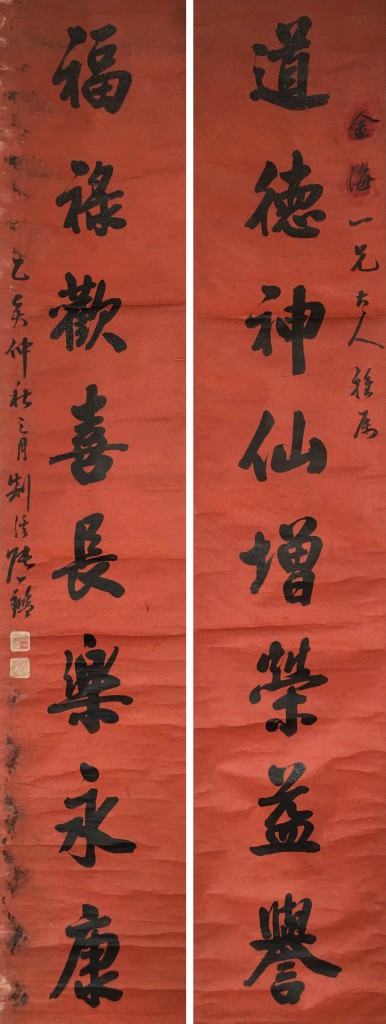 金海一兄大人雅属
道德神仙增榮益譽
福祿歡喜長樂永康
乙亥仲秋之月